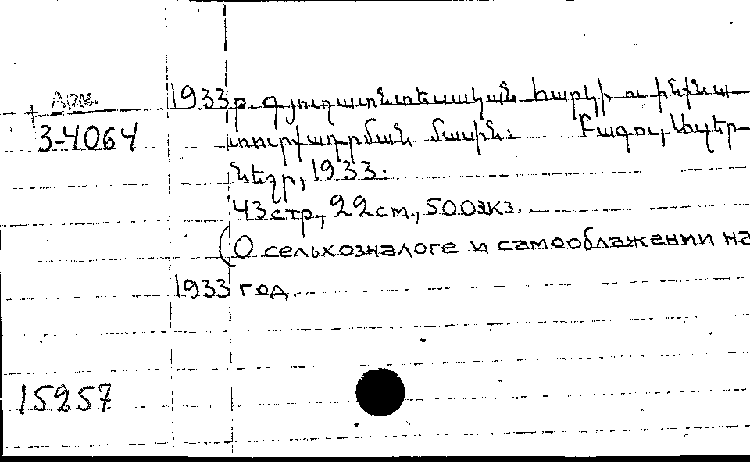 Арм. 1933 թ. գյուղատնտեսական հարկի ու ինքնա-
3-4064 տուրքադրման մասին: Բագու, Ազեր-
նեշր, 1933.
43 стр., 22 см., 500 экз.
(О сельхозналоге и самообложении на
1933 год
15257